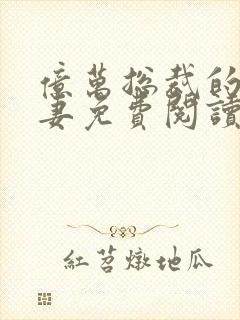 億萬總裁的
妻免費閱讀
紅苕燉地瓜